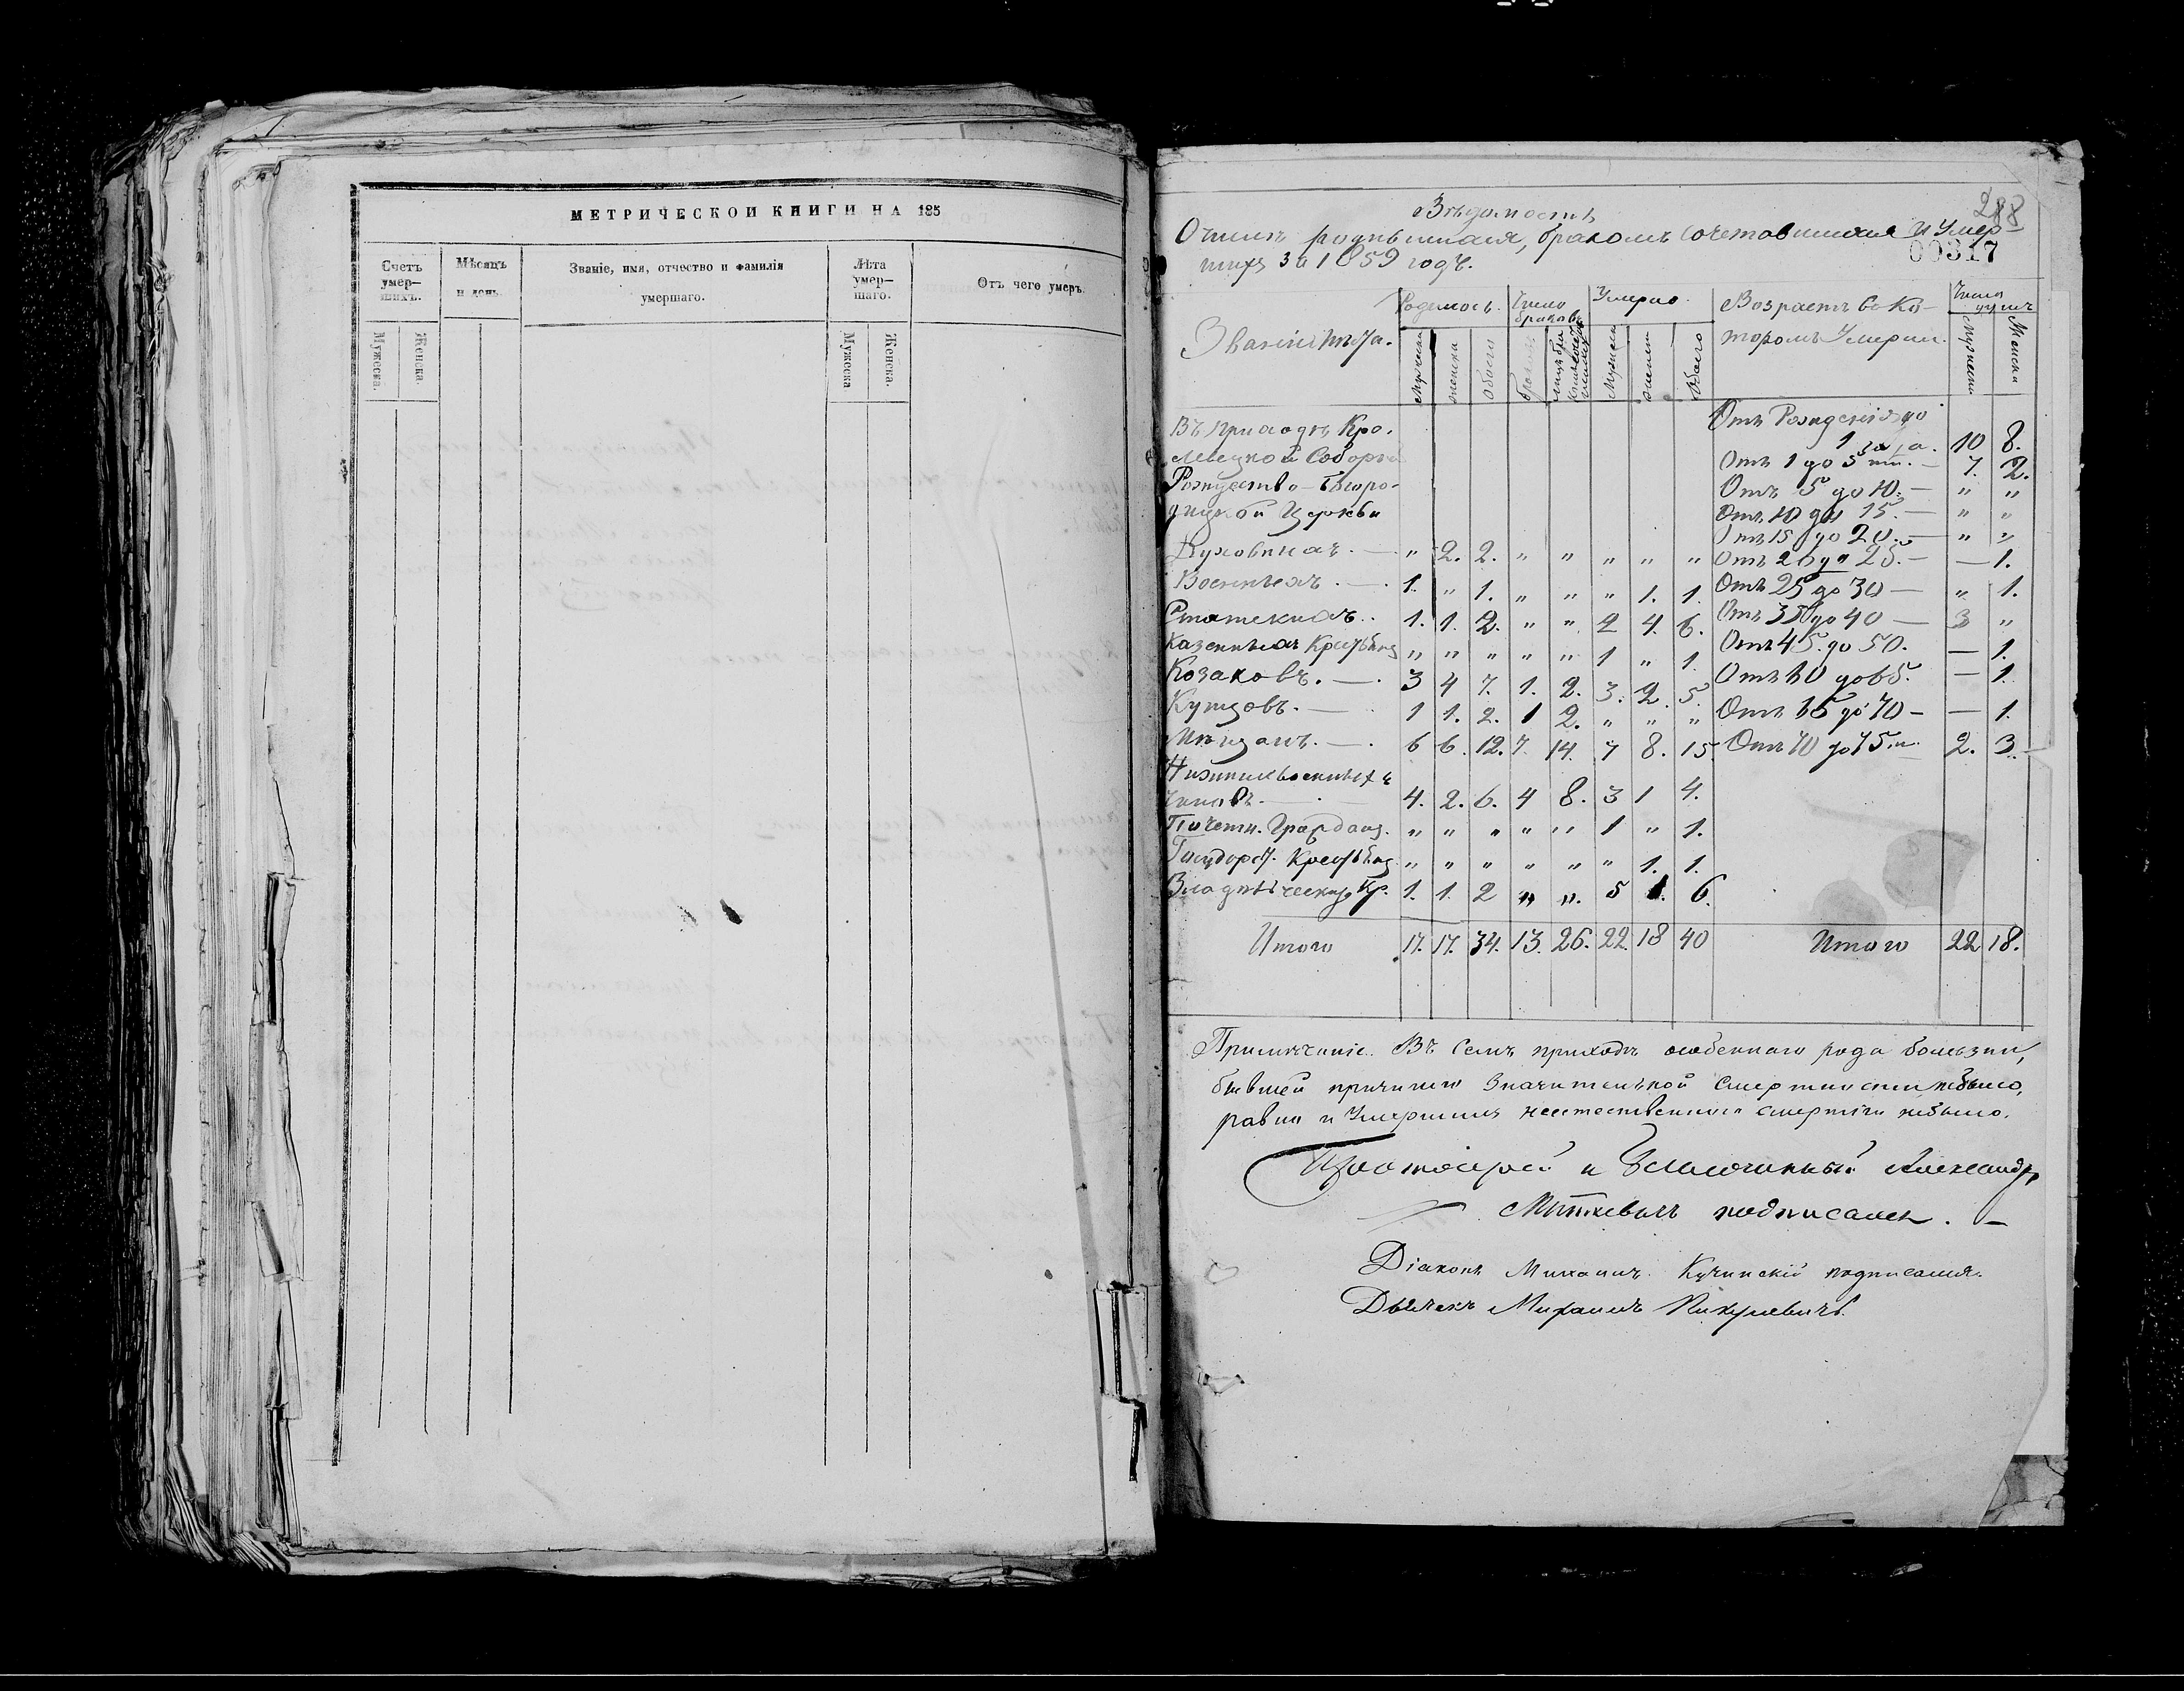 МЕТРИЧЕСКОЙ КНИГИ НА 185
Счетъ умер-шихъ.
Мужеска.
Женска.
Мѣсяцъ и день.
Званіе, имя, отчество и фамилія умершаго.
Лѣта умер-шаго.
Мужеска
Женска.
Отъ чего умеръ.
288
Вѣдомость
О числѣ родившихся, бракомъ сочетавшихся и умер-
шихъ за 1859 годъ.
00317
Званіе
Родилось.
Число браковъ
Умерло.
Возрастъ въ ко-
торомъ умерли.
Число душъ
Мужеск
женска
обоего
Мужеск
женск
Обоего
Мужеск
Женска
Въ приходѣ Кро-
левецкой Соборн
Рождество-Богоро-
дицкой Церкви
Отъ Рожденія до
1 года. 10 8.
Отъ 1 до 5 — 7. 2.
Отъ 5 до 10. — " "
Отъ 10 до 15. — " "
Отъ 15 до 20. — " "
Духовныхъ. — " 2. 2. " " " " " Отъ 20 до 25. — — 1.
Военныхъ. — 1. " 1. " " " 1. 1. Отъ 25 до 30 — " 1.
Статскихъ. . 1. 1. 2. " " 2 4. 6. Отъ 35 до 40 — 3 "
Казенныхъ " " " " " 1 " 1. Отъ 45 до 50. — 1.
Козаковъ. — 3 4 7. 1. 2. 3. 2. 5. Отъ 60 до 65. — 1.
Купцовъ. — 1 1. 2. 1 2. " " " Отъ 65 до 70 — — 1.
Мѣщанъ. — 6 6. 12. 7. 14. 7 8. 15. Отъ 70 до 75 2. 3.
Нижнихъ военныхъ
чиновъ. — 4. 2. 6. 4 8. 3 1 4.
Почетн. Гражданъ. " " " " " 1 " 1.
Государст. " " " " " " 1. 1.
Владѣльческихъ Кр. 1. 1. 2 " ". 5 1. 6.
Итого 17. 17. 34. 13. 26. 22. 18 40 Итого 22 18.
Примѣчаніе. Въ семъ приходѣ особеннаго рода болѣзни,
бывшей причиною значительной смертности небыло,
равно и умершихъ неестественною смертію небыло.
Протоіерей и Благочинный Александръ
подписалъ. —
Діаконъ Михаилъ Кучинскій подписалъ.
Дьячекъ Михаилъ